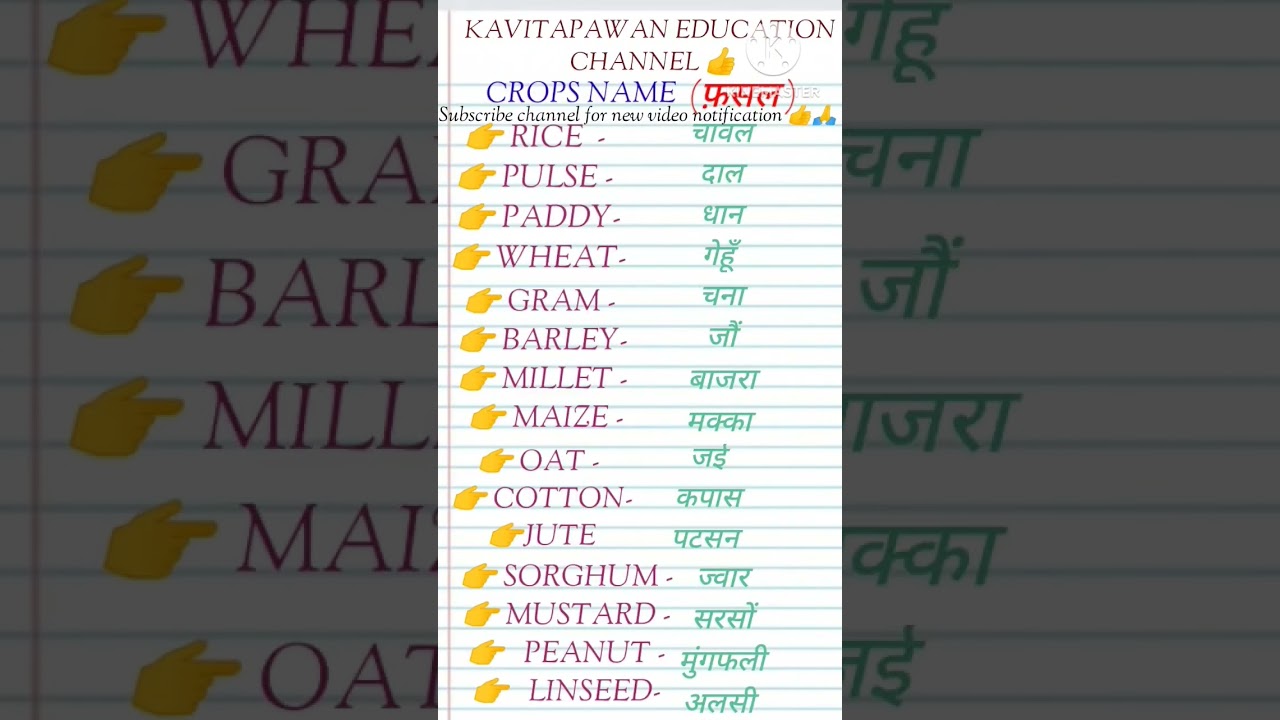 KAVITAPAWAN EDUCATION
CHANNEL 👍
CROPS NAME (फ़सल)
Subscribe channel for new video notification 👍🙏
👉 RICE - चावल
👉 PULSE - दाल
👉 PADDY- धान
👉 WHEAT- गेहूँ
👉 GRAM - चना
👉 BARLEY- जौं
👉 MILLET - बाजरा
👉 MAIZE - मक्का
👉 OAT - जई
👉 COTTON- कपास
👉 JUTE पटसन
👉 SORGHUM - ज्वार
👉 MUSTARD - सरसों
👉 PEANUT - मुंगफली
👉 LINSEED- अलसी